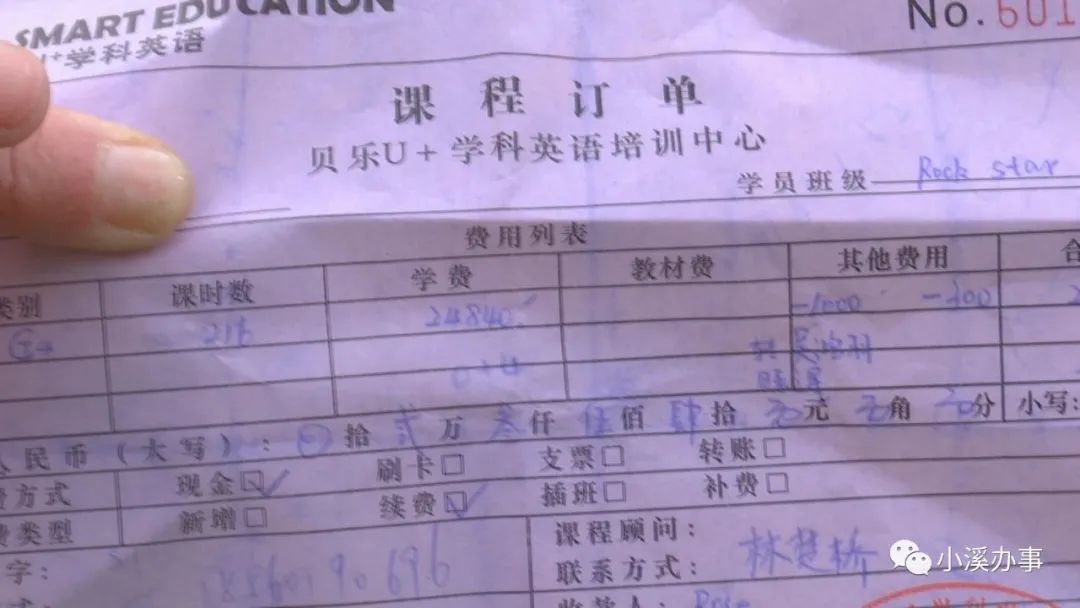 SMART EDUCATION
No.601
U+学科英语
课程订单
贝乐U+学科英语培训中心
学员班级 Rock star
费用列表
类别 课时数 学费 教材费 其他费用 合
G+ 216 24840 -1000 -300 2
人民币(大写): 拾 贰 万 叁 仟 伍 佰 肆 拾 元 角 分 小写:
费方式 现金 刷卡 支票 转账
费类型 新增 续费 插班 补费
字: 课程顾问: 林楚桥
联系方式:
收款人: Rose
小溪办事